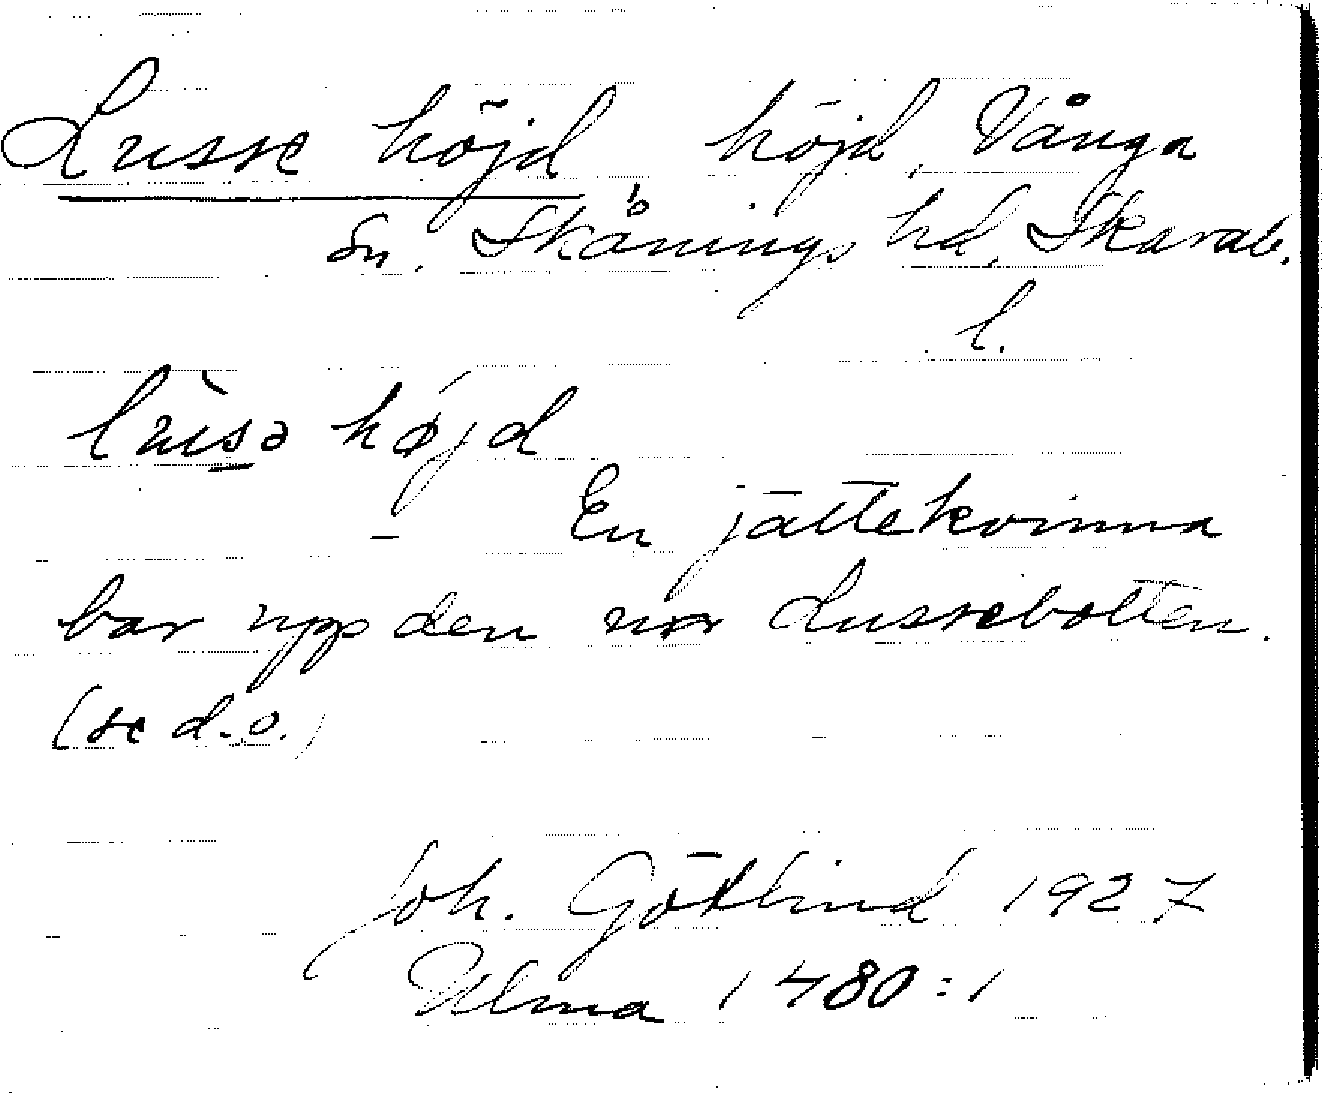 Lusse höjd höjd, Vånga
Sn. Skånings hd, Skarab.
l.
lùsə højd
– En jättekvinna
bar upp den ur Lussebotten.
(se d.o.)
Joh. Götlind 1927
Ulma 1480:1